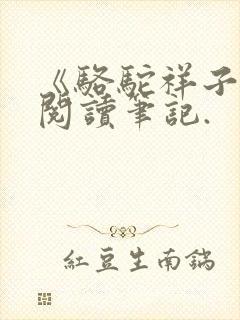 《駱駝祥子
閱讀筆記.
紅豆生南鍋